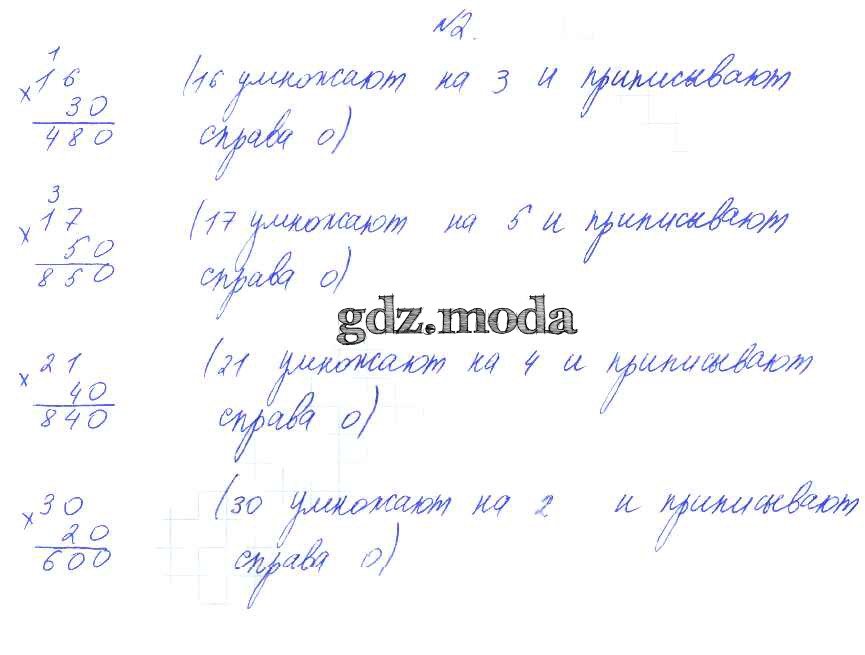 №2.
1
× 16 (16 умножают на 3 и приписывают
30 справа 0)
480
3
× 17 (17 умножают на 5 и приписывают
50 справа 0)
850
gdz.moda
× 21 (21 умножают на 4 и приписывают
40 справа 0)
840
× 30 (30 умножают на 2 и приписывают
20 справа 0)
600